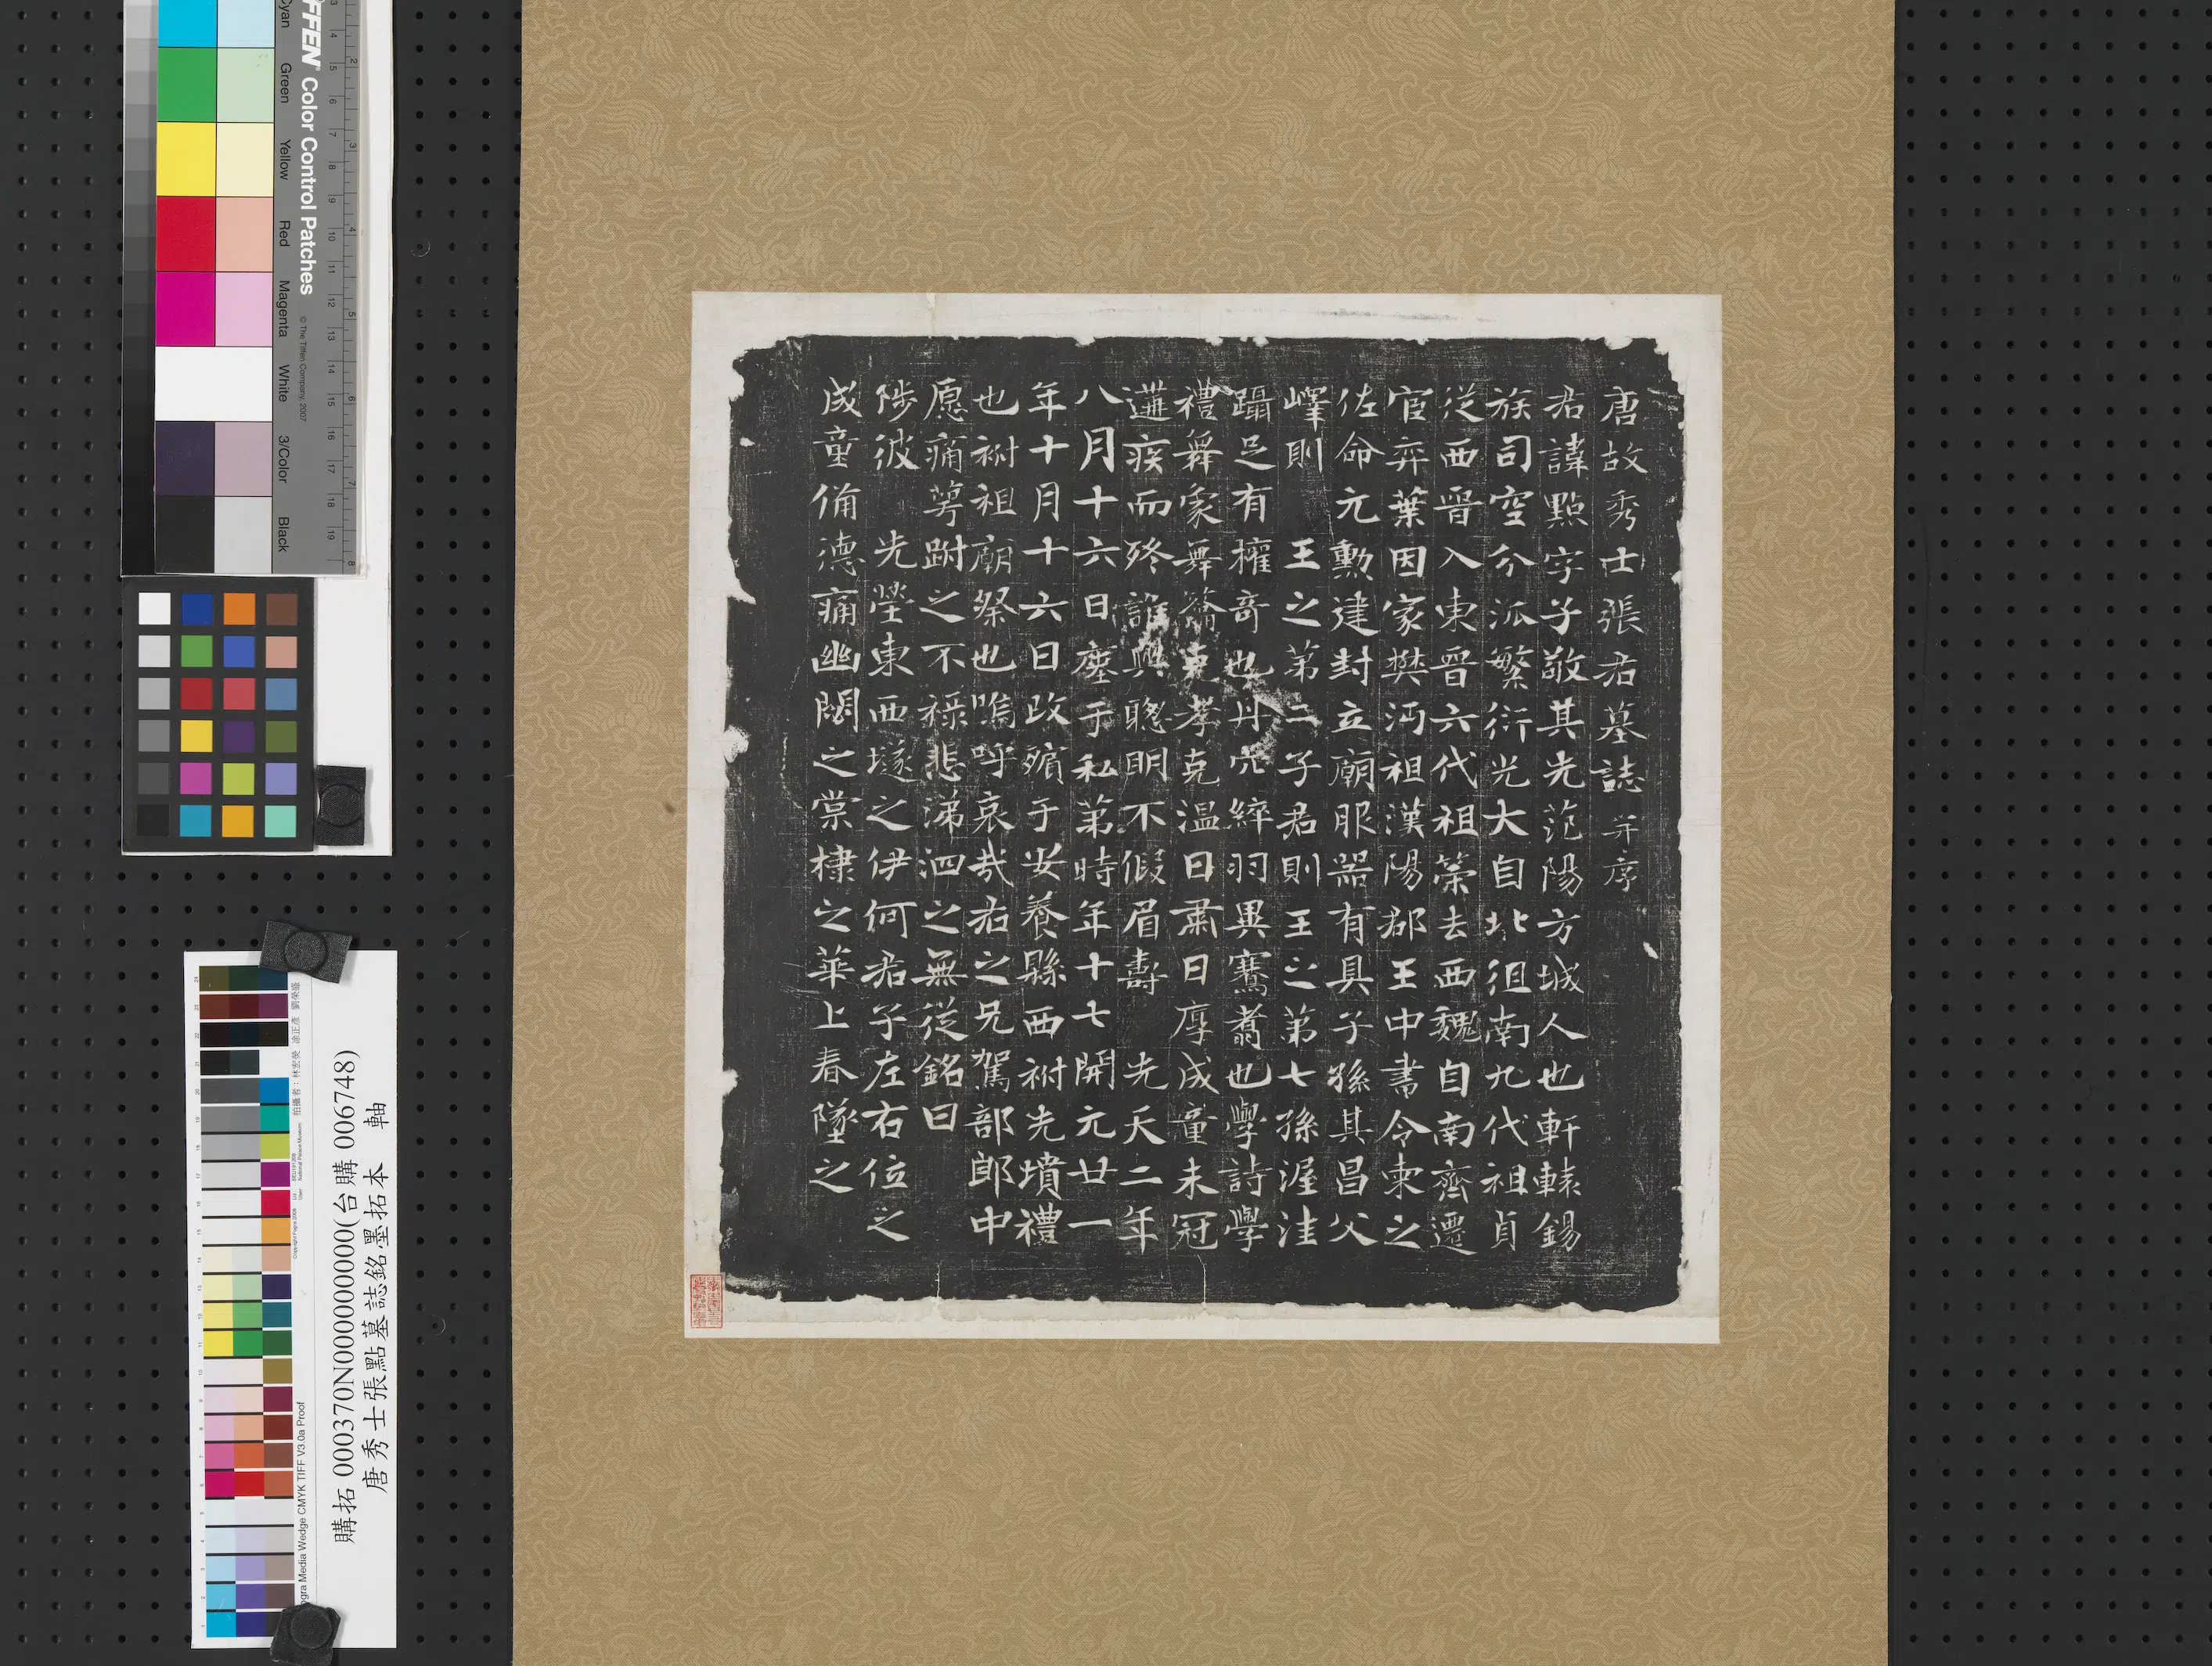 唐故秀士張君墓誌并序
君諱點字子敬其先范陽方城人也軒轅錫
族司空分派繁衍光大自北徂南九代祖貞
從西晉入東晉六代祖策去西魏自南齊遷
宦弈葉因家樊沔祖漢陽郡王中書令柬之
佐命元勳建封立廟服器有具子孫其昌父
嶧則王之第二子君則王之第七孫渥洼
躡足有權奇也丹穴綷羽異騫翥也學詩學
禮舞象舞籥克孝克溫日肅日厚成童未冠
遘疾而終誰與聰明不假眉壽先天二年
八月十六日塟于私第時年十七開元廿一
年十月十六日改殯于安養縣西祔先墳禮
也祔祖廟祭也嗚呼哀哉君之兄駕部郎中
愿痛萼跗之不祿悲涕泗之無從銘曰
陟彼先塋東西墜之伊何君子左右位之
成童備德痛幽閟之棠棣之華上春墜之
購拓 000370N000000000(台購 006748)
唐秀士張點墓誌銘墨拓本 軸
TIFFEN Color Control Patches
© The Tiffen Company, 2007
Cyan Green Yellow Red Magenta White 3/Color Black
Ugra Media Wedge CMYK TIFF V3.0a Proof